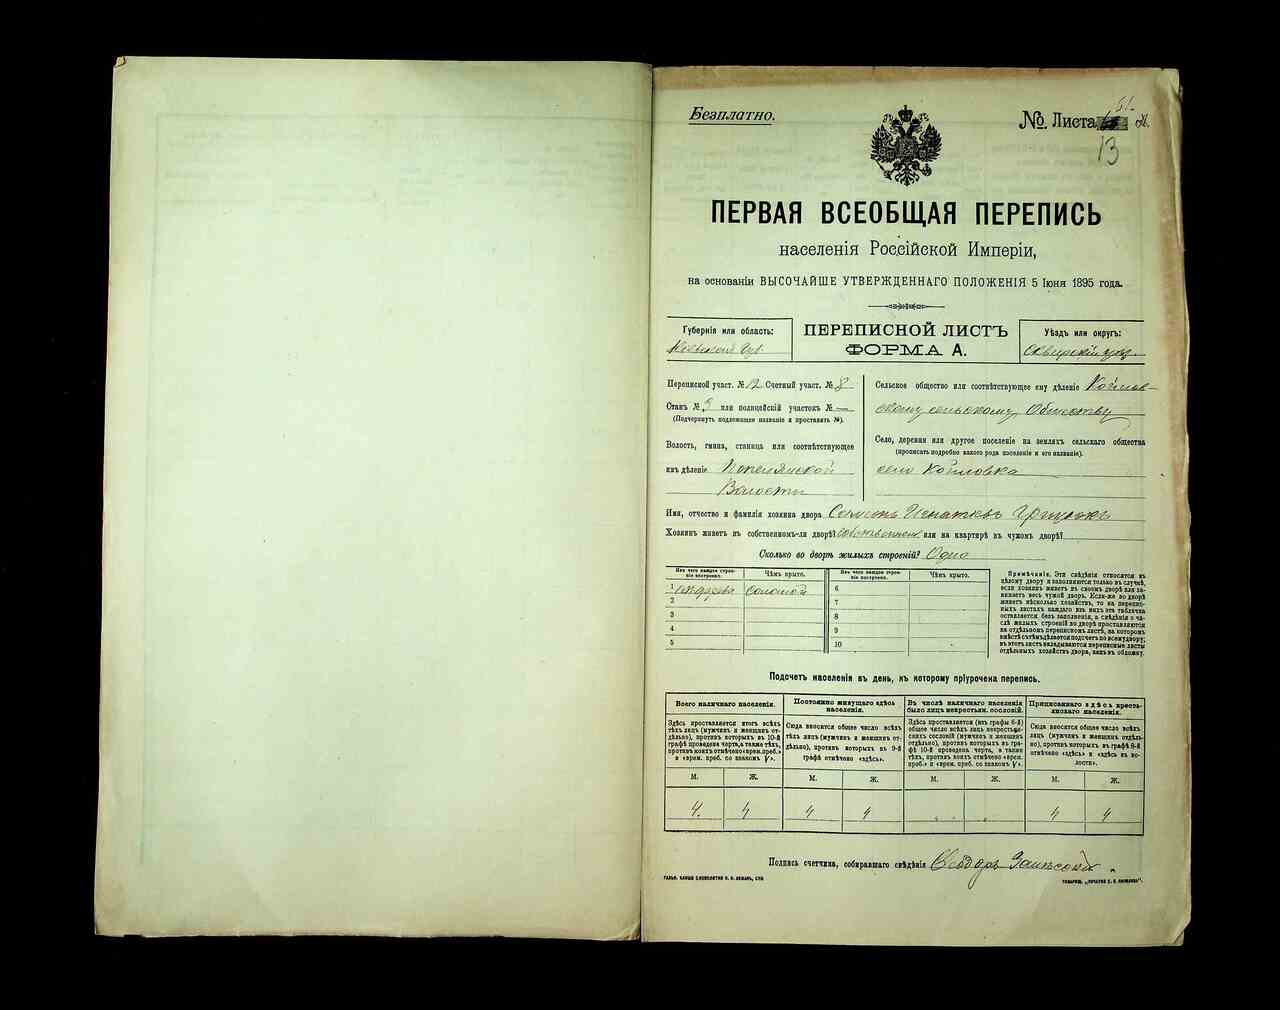 Безплатно.
№. Листа 61.
13
ПЕРВАЯ ВСЕОБЩАЯ ПЕРЕПИСЬ
населенія Россійской Имперіи,
на основаніи ВЫСОЧАЙШЕ УТВЕРЖДЕННАГО ПОЛОЖЕНІЯ 5 Іюня 1895 года.
Губернія или область:
Кіевской Губ.
ПЕРЕПИСНОЙ ЛИСТЪ
ФОРМА А.
Уѣздъ или округъ:
Сквирскій уѣзд.
Переписной участ. № 12 Счетный участ. № 8
Станъ № 3 или полицейскій участокъ № —
(Подчеркнуть подлежащее названіе и проставить №).
Волость, гмина, станица или соотвѣтствующее
имъ дѣленіе
Волости
Сельское общество или соотвѣтствующее ему дѣленіе Койлов-
скому сельскому Обществу
Село, деревня или другое поселеніе на земляхъ сельскаго общества
(прописать подробно какого рода поселеніе и его названіе).
село Койловка
Имя, отчество и фамилія хозяина двора Семенъ Игнатьевъ Грицюкъ
Хозяинъ живетъ въ собственномъ-ли дворѣ? собственном или на квартирѣ въ чужомъ дворѣ?
Сколько во дворѣ жилыхъ строеній? Одно
Изъ чего каждое строеніе построено.
Чѣмъ крыто.
Изъ чего каждое строеніе построено.
Чѣмъ крыто.
1 Изъ дерева Соломой
2
3
4
5
6
7
8
9
10
Примѣчаніе. Эти свѣдѣнія относятся къ
цѣлому двору и заполняются только въ случаѣ,
если хозяинъ живетъ въ своемъ дворѣ или занимаетъ
весь чужой дворъ. Если-же во дворѣ
живетъ нѣсколько хозяйствъ, то на переписныхъ
листахъ каждаго изъ нихъ эта табличка
оставляется безъ заполненія, а свѣдѣнія о числѣ
жилыхъ строеній во дворѣ проставляются
на отдѣльномъ переписномъ листѣ, на которомъ
вмѣстѣ съ тѣмъ дѣлается подсчетъ по всему двору;
въ этотъ листъ вкладываются переписные листы
отдѣльныхъ хозяйствъ двора, какъ въ обложку.
Подсчетъ населенія въ день, къ которому пріурочена перепись.
Всего наличнаго населенія.
Постоянно живущаго здѣсь
населенія.
Въ числѣ наличнаго населенія
было лицъ некрестьян. сословій.
Приписаннаго здѣсь крестьянскаго
населенія.
Здѣсь проставляется итогъ всѣхъ
тѣхъ лицъ (мужчинъ и женщинъ отдѣльно),
противъ которыхъ въ 10-й
графѣ проведена черта, а также тѣхъ,
противъ коихъ отмѣчено «врем. преб.»
и «врем. преб. со знакомъ V».
Сюда вносится общее число всѣхъ
тѣхъ лицъ (мужчинъ и женщинъ отдѣльно),
противъ которыхъ въ 9-й
графѣ отмѣчено «здѣсь».
Здѣсь проставляется (изъ графы 6-й)
общее число всѣхъ лицъ некрестьянскихъ
сословій (мужчинъ и женщинъ
отдѣльно), противъ которыхъ въ графѣ
10-й проведена черта, а также
тѣхъ, противъ коихъ отмѣчено «врем.
преб.» и «врем. преб. со знакомъ V».
Сюда вносится общее число всѣхъ
лицъ (мужчинъ и женщинъ отдѣльно),
противъ которыхъ въ графѣ 8-й
отмѣчено «здѣсь» и «здѣсь въ волости».
М. Ж. М. Ж. М. Ж. М. Ж.
4. 4 4 4 4 4
Подпись счетчика, собиравшаго свѣдѣнія Ѳеодоръ